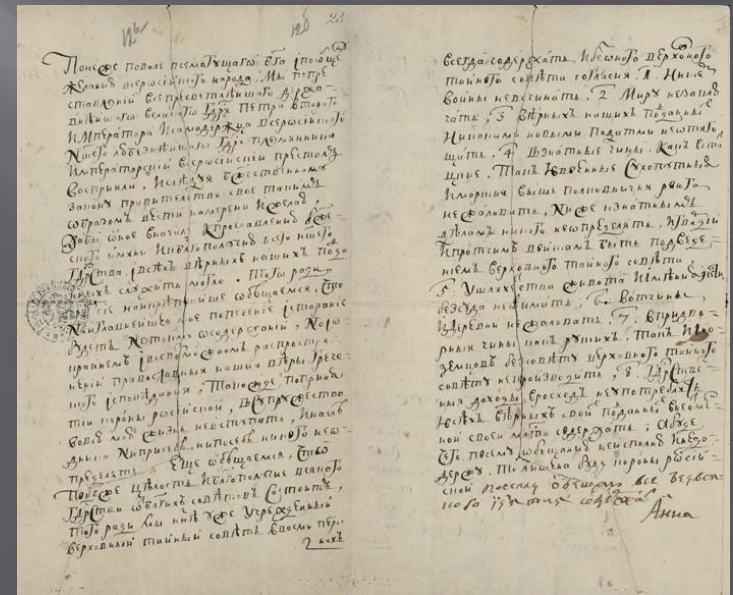 Понеже поволе всемогущаго Бга іпообще
желанию всеросіискаго народа, Мы попре
ставлении всепресветлѣишаго Држа-
внѣишаго великаго Гдря Петра втораго
Императора Исамодержца всеросіискаго
Ншего любезнѣишаго Гдря племянника
Императорскии всеросіискіи престолъ
восприяли, Іслѣдуя бжественному
закону правительство свое такимъ
образомъ вести намерена ижелаю
дабы оное вначале кпрославлению бже-
скаго имяни Иблагополучию всего ншего
Гдрства івсѣхъ вѣрныхъ нашихъ подда
нныхъ служить могло. Того ради
чрезъ сіе наикрепчаише обещаемся, что
Наиглавнѣишее мое попечение істарание
будетъ Нетокмо осодержании, Ноіо
краинемъ івсевозможномъ распростра-
нении православныя нашия вѣры грече-
скаго ісповѣдания, Такожде, поприня
тии короны росіискои, Всупружество
вовсю мою жизнь невступать, Инаслѣ
дника Ниприсебѣ, нипосебѣ никого неоп-
ределять. Еще обѣщаемся, Что
Понеже цѣлость Иблагополучие всякаго
Гдрства отблагихъ совѣтовъ Состоитъ,
Того ради мы ннѣ уже Учрежденныи
верховныи таиныи совѣтъ ввосми персо
нахъ
всегда содержать, Ибезоного верховного
таиного совѣта согласия. 1. Нискѣмъ
воины невсчинать. 2 Миру незаклю
чать. 3 вѣрныхъ нашихъ подданныхъ
Никакими новыми податми неотяго
щать. 4 Взнатные чины, Какъ встат
цкие, Такъ Ивоенные Сухопутныя
Иморския выше полковничья ранга
нежаловать, Ниже кзнатнымъ
дѣламъ никого неопределять, Игвардии
Ипротчимъ воискам быть подведе-
нием верховного таиного совѣта.
5. Ушляхетства живота Иимѣния Ичести
безсуда неотимать, 6. Вотчины
Идеревни нежаловать. 7. Впридво-
рныя чины какъ руских, Такъ Ино-
земцовъ безсовѣту верховного таиного
совѣту непроизводить, 8. Гдрстве-
ныя доходы врасходъ неупотреблять
Ивсѣхъ вѣрныхъ свои подданныхъ внеотмѣ-
ной своеи млсти содержать; Абуде
чего посему обещанию неисполню Инедо-
держу, То лишена буду короны росіи-
скои посему обещаю все безвся-
каго изятия содержать
Анна